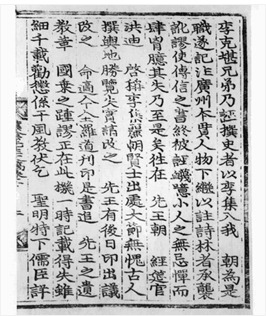 李克堪兄弟乃誣撰史者以李集入我 朝爲是
職遂記注廣州本貫人物下繼以註詩林者承襲
訛謬使傳信之書終被誣噫小人之無忌憚而
肆胷臆其失乃至是矣往在 先王朝 經筵官
洪迪 啓稱李集麗朝賢士出處大節無愧古人
撰輿地勝覽失實請改之 先王有後日印出議
改之 命適今全羅道刊印是書追 先王之遺
敎 國乘之謬正在此機一時記載得失雖
細千載勸懲係于風敎伏乞 聖明特下儒臣詳